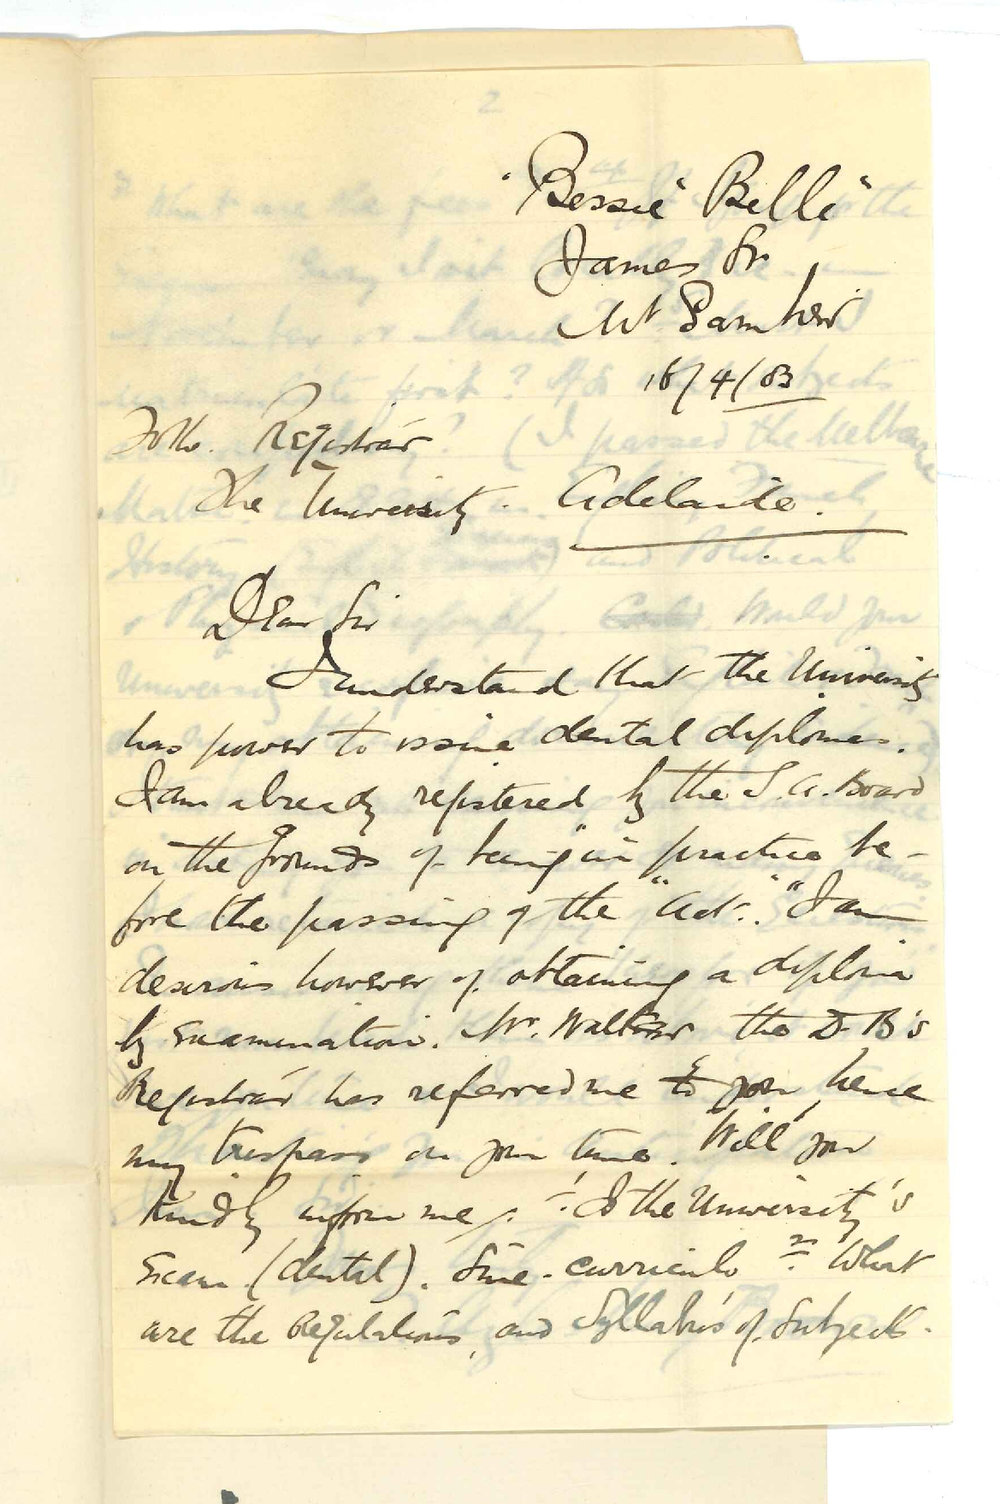 "Bessie Belle"
James St
Mt Gambier
16/4/03
To the Registrar
The University. Adelaide.
Dear Sir
I understand that the University
has power to issue dental diplomas.
I am already registered by the S. A. Board
on the grounds of being "in practice be-
fore the passing of the "Act"." I am
desirous however of obtaining a diploma
by examination. Mr. Walker the D. B's
Registrar has referred me to you hence
my trespass on your time. Will you
kindly inform me, 1. Is the University's
Exam (dental). Sine-curriculo 2. What
are the Regulations, and Syllabus of Subjects.